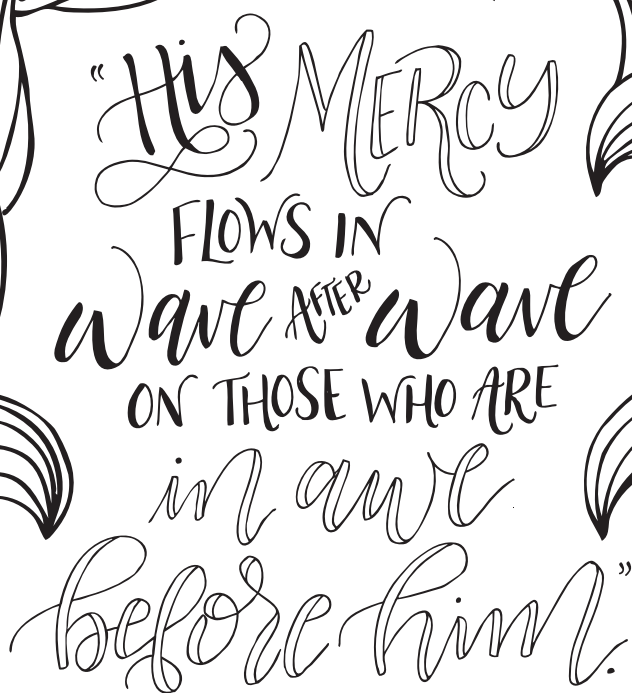 "His MERCY
FLOWS IN
wave AFTER wave
ON THOSE WHO ARE
in awe
before him."